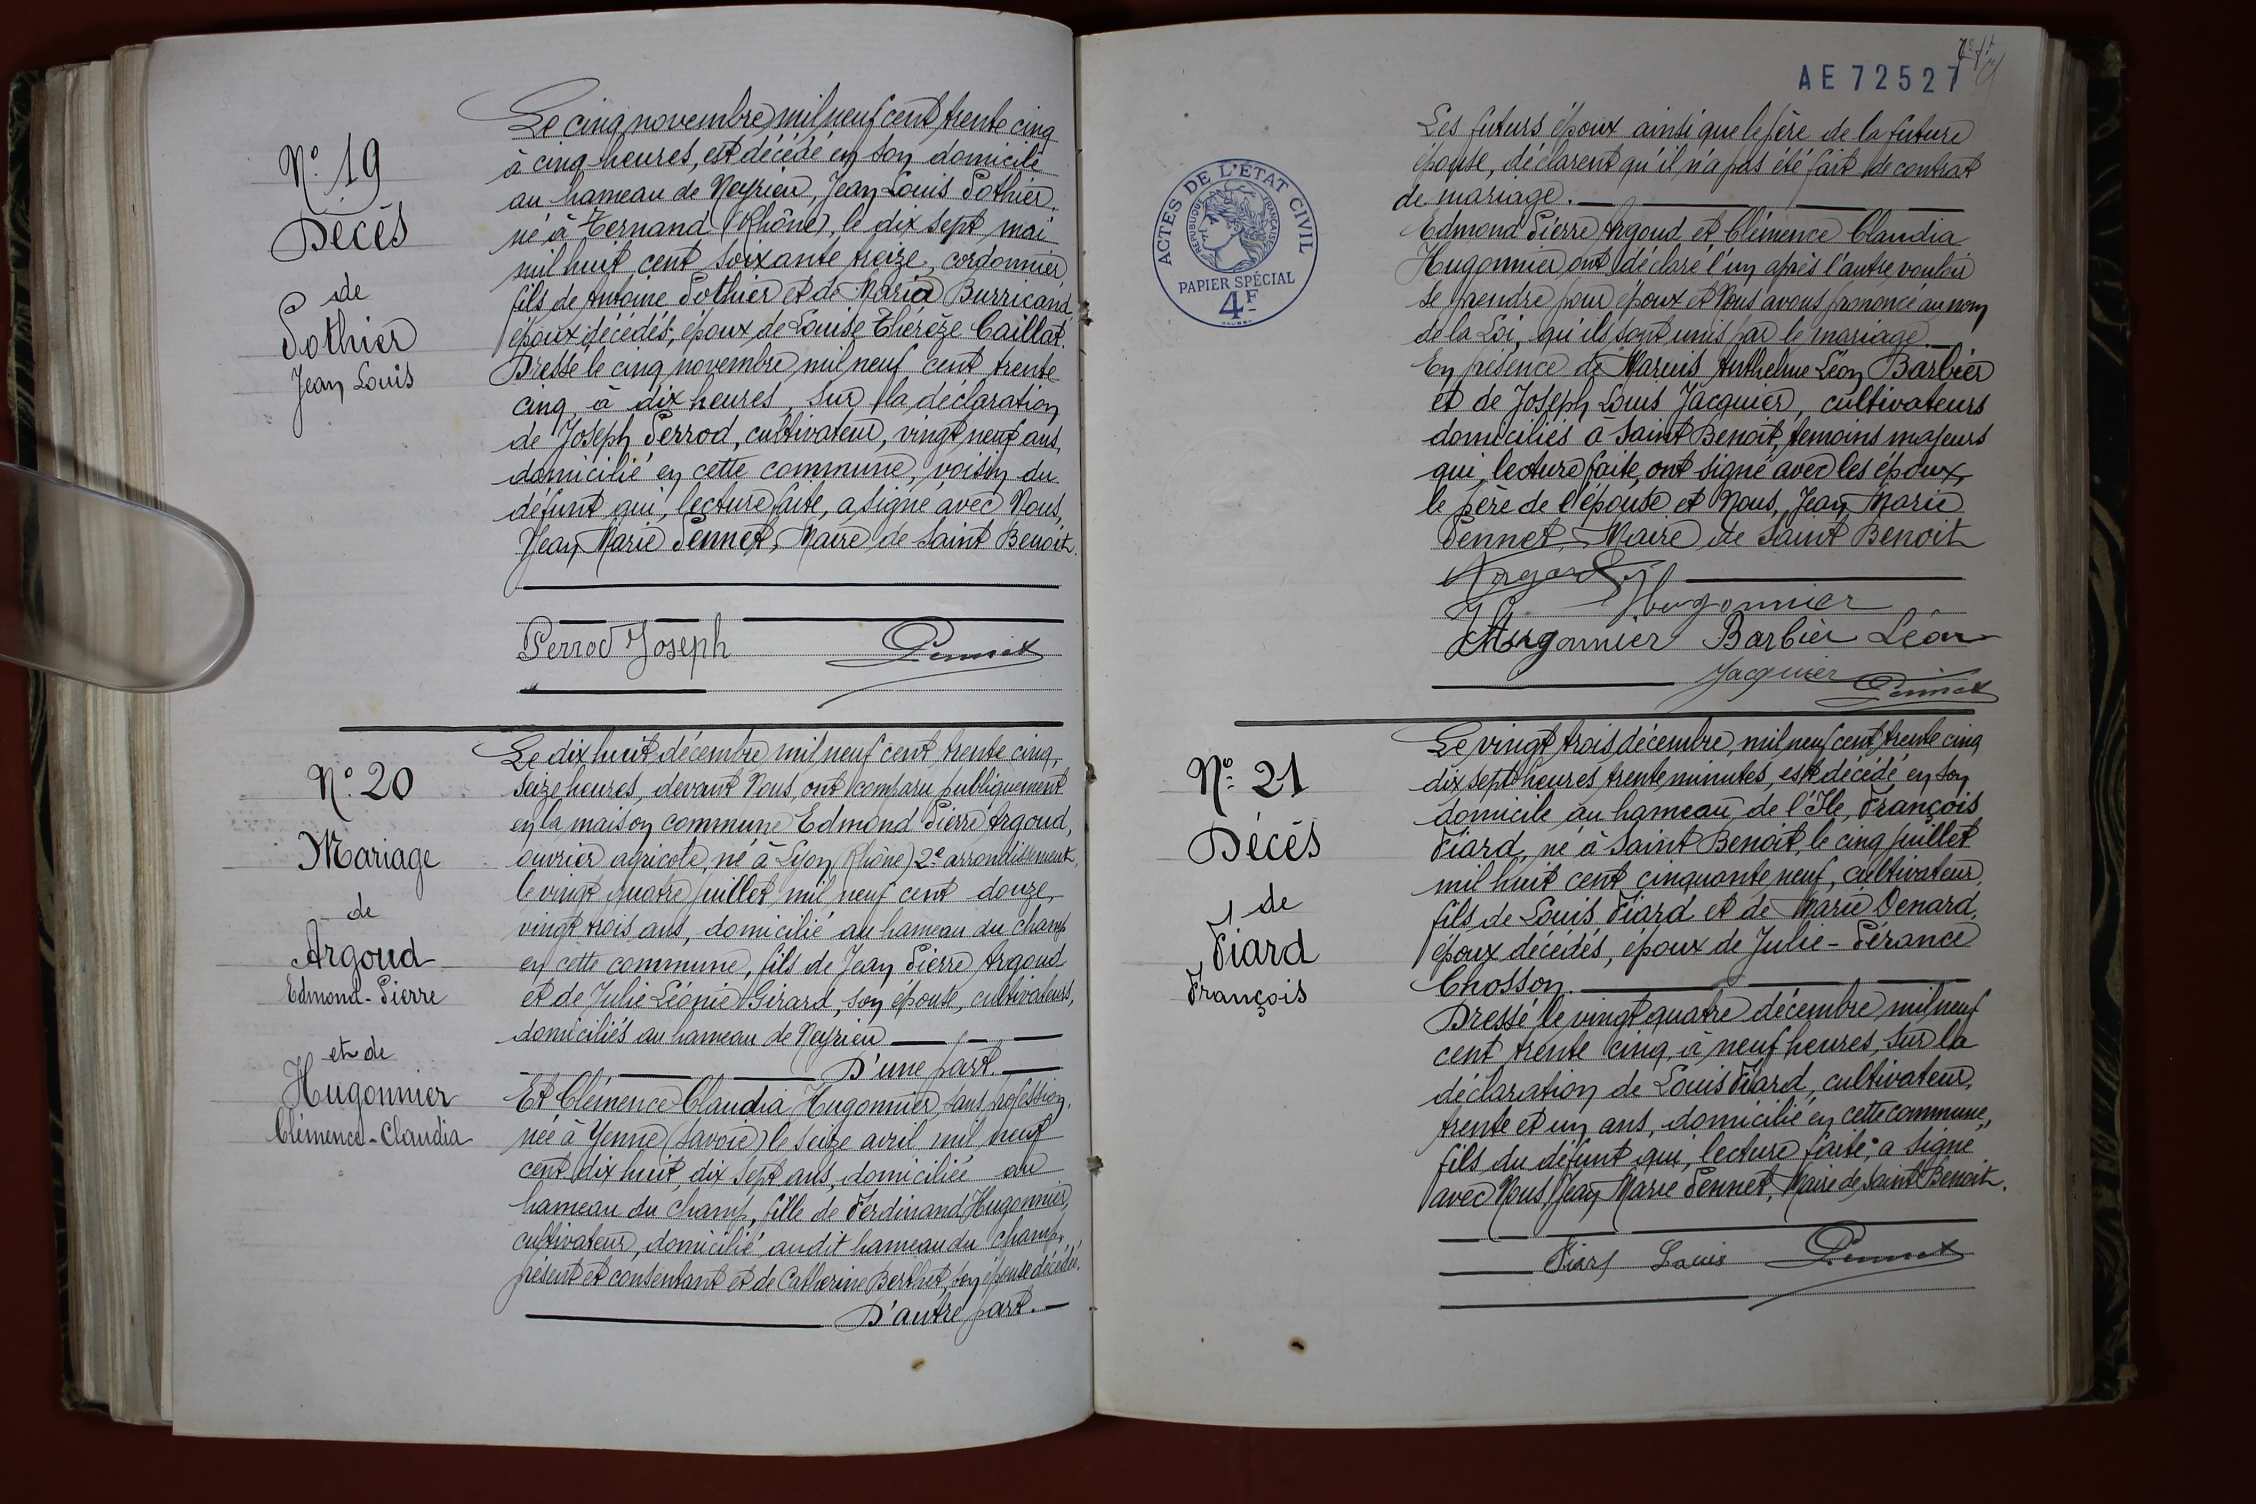 N° 19
Décès
de
Pothier
Jean Louis
Le cinq novembre mil neuf cent trente cinq
à cinq heures, est décédé en son domicile
au hameau de Neyrieu, Jean Louis Pothier
né à Ternand (Rhône), le dix sept mai
mil huit cent soixante treize, cordonnier
fils de Antoine Pothier et de Maria Burricand
époux décédés; époux de Louise Thérèze Caillat.
Dressé le cinq novembre mil neuf cent trente
cinq, à dix heures, sur la déclaration
de Joseph Perrod, cultivateur, vingt neuf ans,
domicilié en cette commune, voisin du
défunt qui, lecture faite, a signé avec Nous,
Jean Marie Pennet, Maire de Saint Benoit.
Perrod Joseph Pennet
N° 20
Mariage
de
Argoud
Edmond-Pierre
et de
Hugonnier
Clémence-Claudia
Le dix huit décembre mil neuf cent trente cinq,
seize heures, devant Nous, ont comparu publiquement
en la maison commune Edmond Pierre Argoud,
ouvrier agricole, né à Lyon (Rhône) 2e arrondissement,
le vingt quatre juillet mil neuf cent douze,
vingt trois ans, domicilié au hameau du Champ
en cette commune, fils de Jean Pierre Argoud
et de Julie Léonie Girard, son épouse, cultivateurs,
domiciliés au hameau de Neyrieu
D'une part.
Et Clémence Claudia Hugonnier, sans profession,
née à Yenne (Savoie) le seize avril mil neuf
cent dix huit, dix sept ans, domiciliée au
hameau du Champ, fille de Ferdinand Hugonnier,
cultivateur, domicilié audit hameau du Champ,
présent et consentant et de Catherine Berthet, son épouse décédée.
D'autre part.
AE 72527
ACTES DE L'ÉTAT CIVIL
RÉPUBLIQUE FRANÇAISE
PAPIER SPÉCIAL
4F
Les futurs époux ainsi que le père de la future
épouse, déclarent qu'il n'a pas été fait de contrat
de mariage.
Edmond Pierre Argoud et Clémence Claudia
Hugonnier ont déclaré l'un après l'autre vouloir
se prendre pour époux et Nous avons prononcé au nom
de la Loi, qu'ils sont unis par le mariage.
En présence de Marius Anthelme Léon Barbier
et de Joseph Louis Jacquier, cultivateurs
domiciliés à Saint Benoit, témoins majeurs
qui, lecture faite, ont signé avec les époux,
le père de l'épouse et Nous, Jean Marie
Pennet, Maire de Saint Benoit
Argoud
Hugonnier
Hugonnier Barbier Léon
Jacquier Pennet
N° 21
Décès
de
Fiard
François
Le vingt trois décembre, mil neuf cent trente cinq
dix sept heures trente minutes, est décédé en son
domicile au hameau de l'Ile, François
Fiard, né à Saint Benoit, le cinq juillet
mil huit cent cinquante neuf, cultivateur,
fils de Louis Fiard et de Marie Denard,
époux décédés, époux de Julie-Pérance
Chosson.
Dressé le vingt quatre décembre mil neuf
cent trente cinq, à neuf heures, sur la
déclaration de Louis Fiard, cultivateur,
trente et un ans, domicilié en cette commune,
fils du défunt qui, lecture faite, a signé
avec Nous, Jean Marie Pennet, Maire de Saint Benoit.
Fiard Louis Pennet